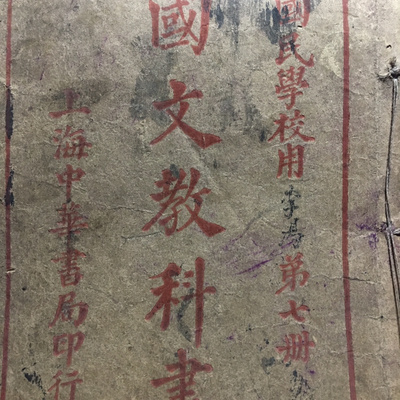 國民學校用 第七册
國文教科書
上海中華書局印行